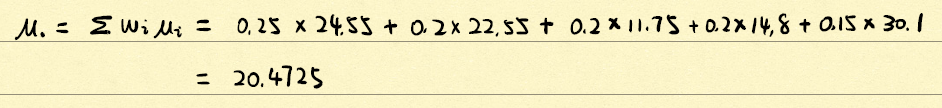 μ. = Σ wi μi = 0.25 × 24.55 + 0.2 × 22.55 + 0.2 × 11.75 + 0.2 × 14.8 + 0.15 × 30.1
= 20.4725